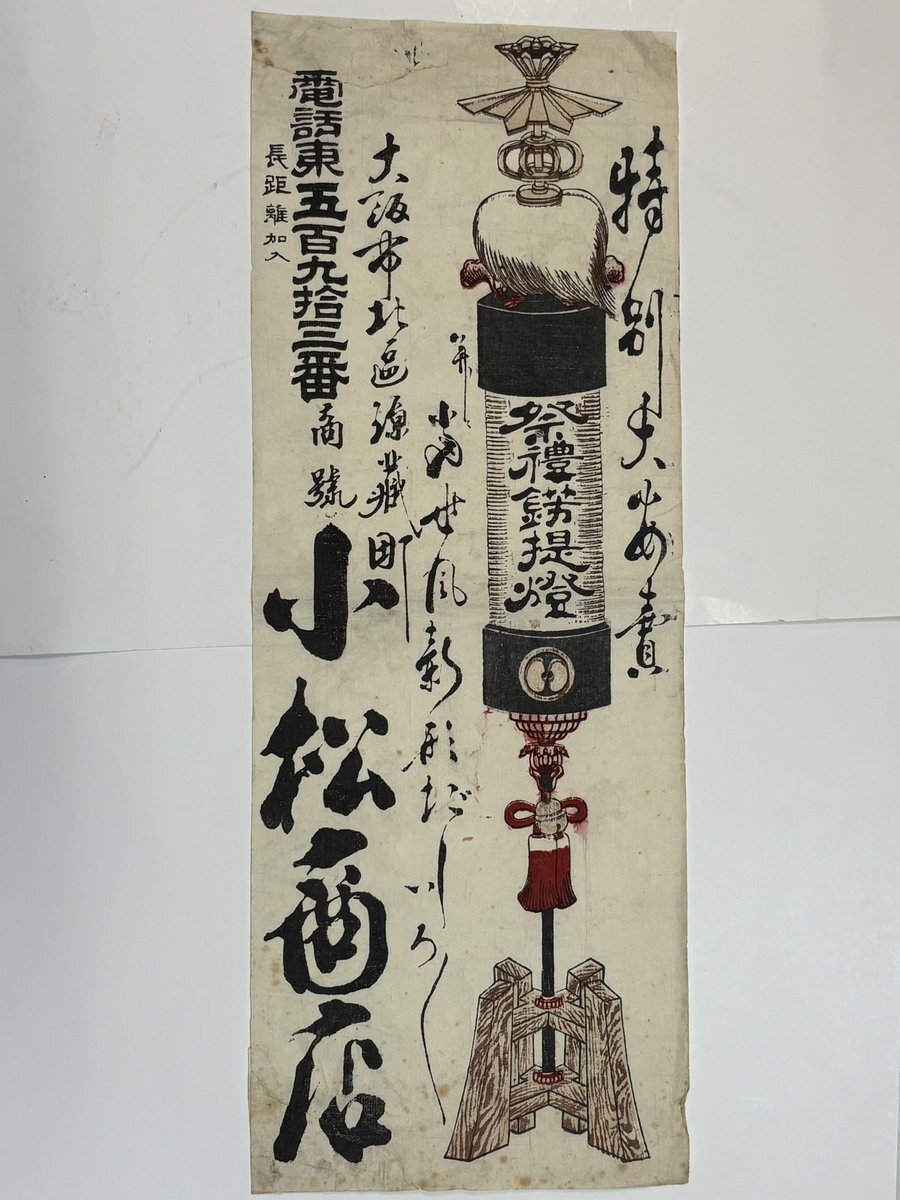 特別大安賣
祭禮錺提燈
當世風新形いろ〳〵
大阪市北區源藏町
電話東五百九拾三番
長距離加入
商號
小松商店